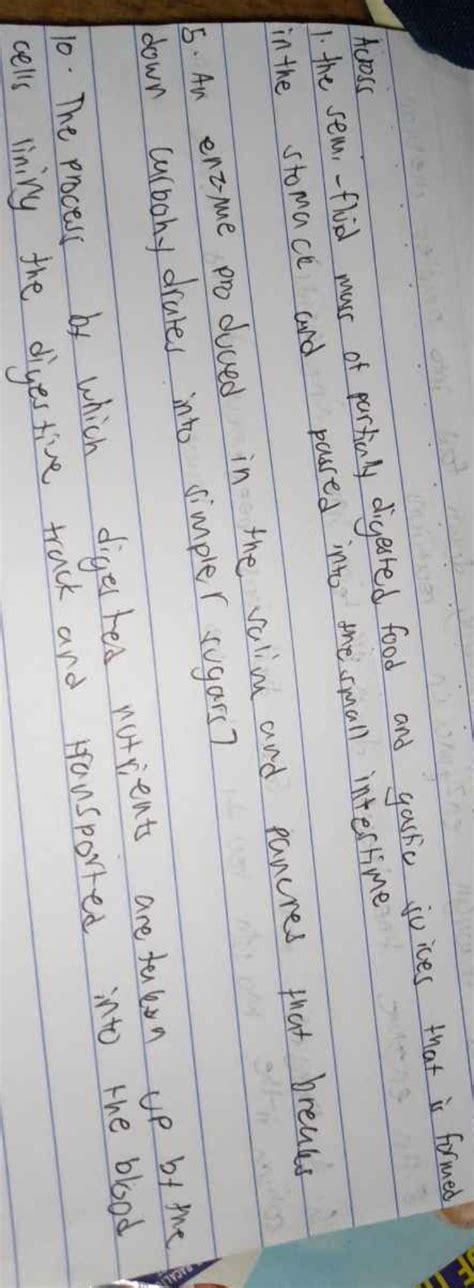 Across
1. the semi-fluid mass of partially digested food and gastic juices that is formed
in the stomack and passed into the small interstime
5. An enzyme produced in the saliva and pancres that breaks
down carbohydrates into simpler sugars?
10. The process by which digested nutrients are taken up by the
cells lining the digestive track and transported into the blood